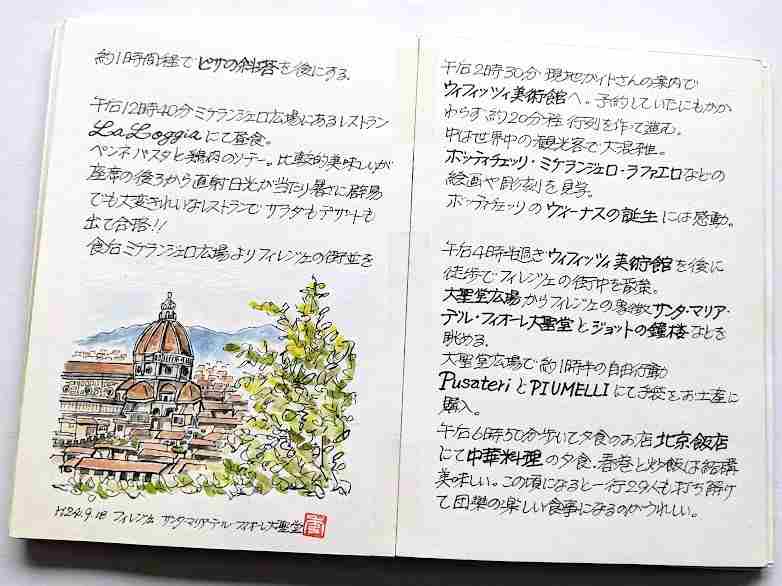 約1時間程でピサの斜塔を後にする。
午后12時40分ミケランジェロ広場にあるレストラン
La Loggiaにて昼食。
ペンネパスタと鶏肉のソテー。比較的美味しいが
座席の後ろから直射日光が当たり暑さに辟易
でも大変きれいなレストランでサラダもデザートも
出て合格!!
食后ミケランジェロ広場よりフィレンツェの街並を
H24.9.18 フィレンツェ サンタ・マリア・デル フィオーレ大聖堂
午后2時30分 現地ガイドさんの案内で
ウィフィッツィ美術館へ。予約していたにもかか
わらず、約20分程行列を作って進む。
中は世界中の観光客で大混雑。
ボッティチェッリ・ミケランジェロ・ラファエロなどの
絵画や彫刻を見学。
ボッティチェッリのヴィーナスの誕生には感動。
午后4時半過ぎウィフィッツィ美術館を後に
徒歩でフィレンツェの街中を散策。
大聖堂広場からフィレンツェの象徴サンタ・マリア・
デル・フィオーレ大聖堂とジョットの鐘楼などを
眺める。
大聖堂広場で約1時半の自由行動
PusateriとPIUMELLIにて手袋をお土産に
購入。
午后6時50分歩いて夕食のお店北京飯店
にて中華料理の夕食。春巻と炒飯は結構
美味しい。この頃になると一行29人も打ち解け
て団欒の楽しい食事になるのがうれしい。